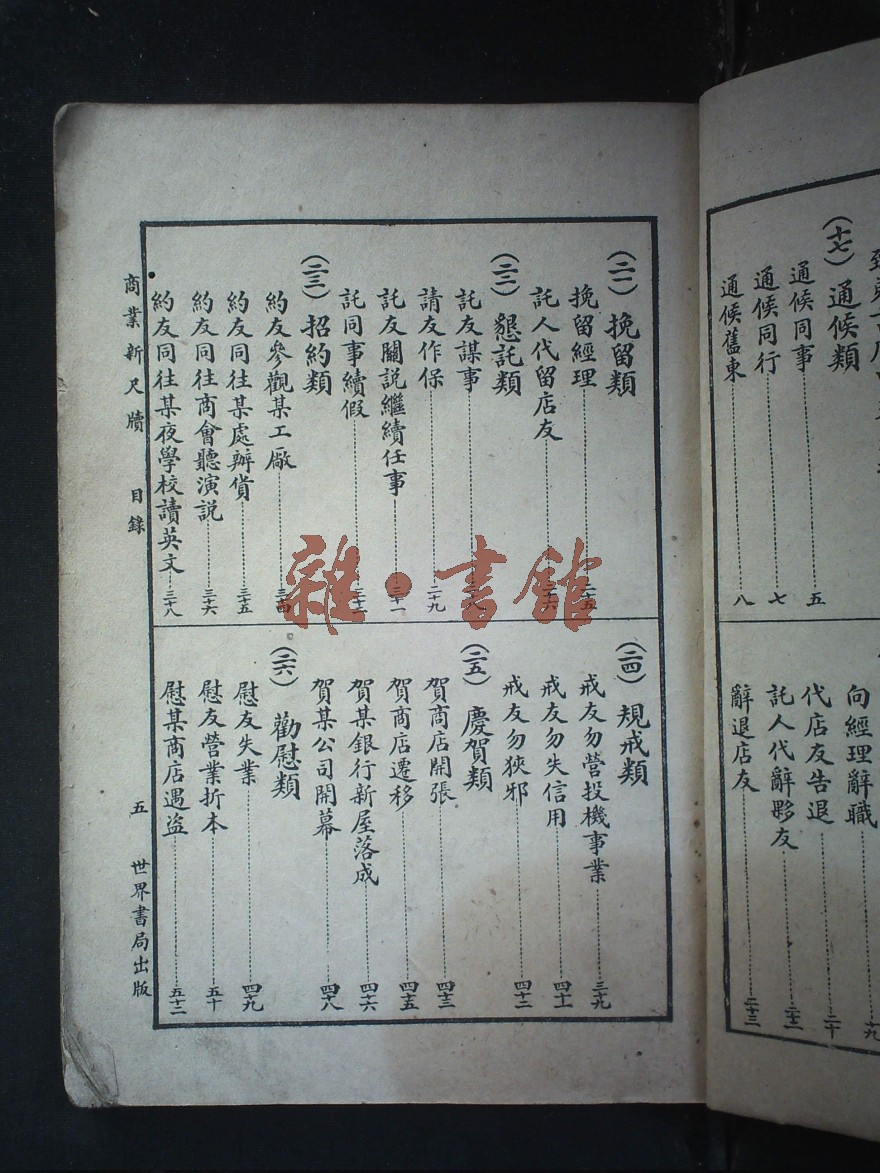 (十七)通候類
通候同事 五
通候同行 七
通候舊東 八
向經理辭職 十九
代店友告退 二十
託人代辭夥友 二十二
辭退店友 二十三
(二一)挽留類
挽留經理 二十五
託人代留店友 二十六
(二二)懇託類
託友謀事
請友作保 二十九
託友關說繼續任事 三十一
託同事續假
(二三)招約類
約友參觀某工廠 三十四
約友同往某處辦貨 三十五
約友同往商會聽演説 三十六
約友同往某夜學校讀英文 三十八
(二四)規戒類
戒友勿營投機事業 三十九
戒友勿失信用 四十一
戒友勿狹邪 四十二
(二五)慶賀類
賀商店開張 四十三
賀商店遷移 四十五
賀某銀行新屋落成 四十六
賀某公司開幕 四十八
(二六)勸慰類
慰友失業 四十九
慰友營業折本 五十
慰某商店遇盜 五十二
商業新尺牘 目錄 五 世界書局出版
雜·書館